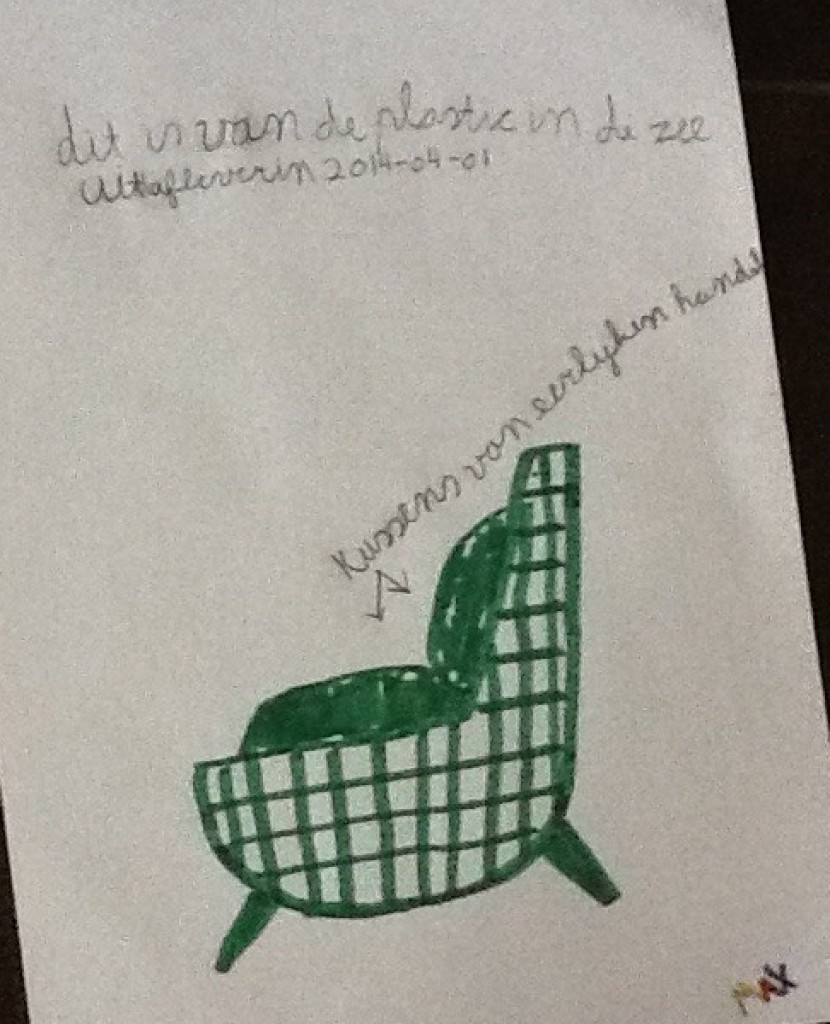 dit is van de plastic in de zee
Uitafleverin 2014-04-01
Kussens van eerlyken handel
MAX